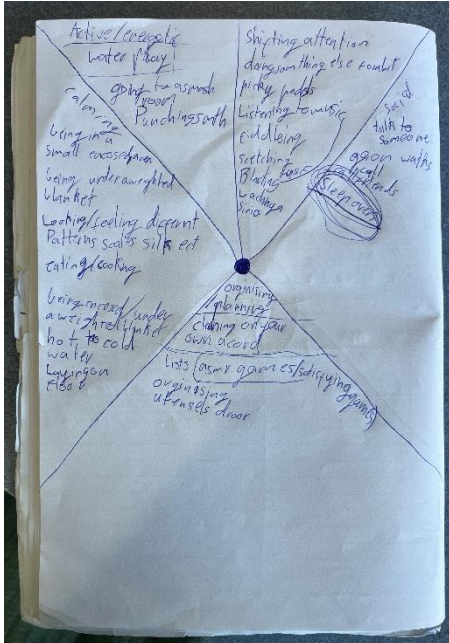 Active/energetic
water play
going to a smash
room
Punching smth
Shifting attention
doing somthing else for abit
picky pads
Listening to music
fiddleing
stretching
Blasting
waching a
Social
talk to
someone
go on walks
call
friends
Sleepover
calming
being in a
small encosed
being under aweighted
blanket
Looking/feeling different
Patterns scales silk ect
eating/cooking
being in bed/under
a weighted blanket
hot to cold
water
Laying on
floor
orginising
/planning
cleaning on your
own acord
Lists (asmr games/satisfying games)
orginising
utensels droor